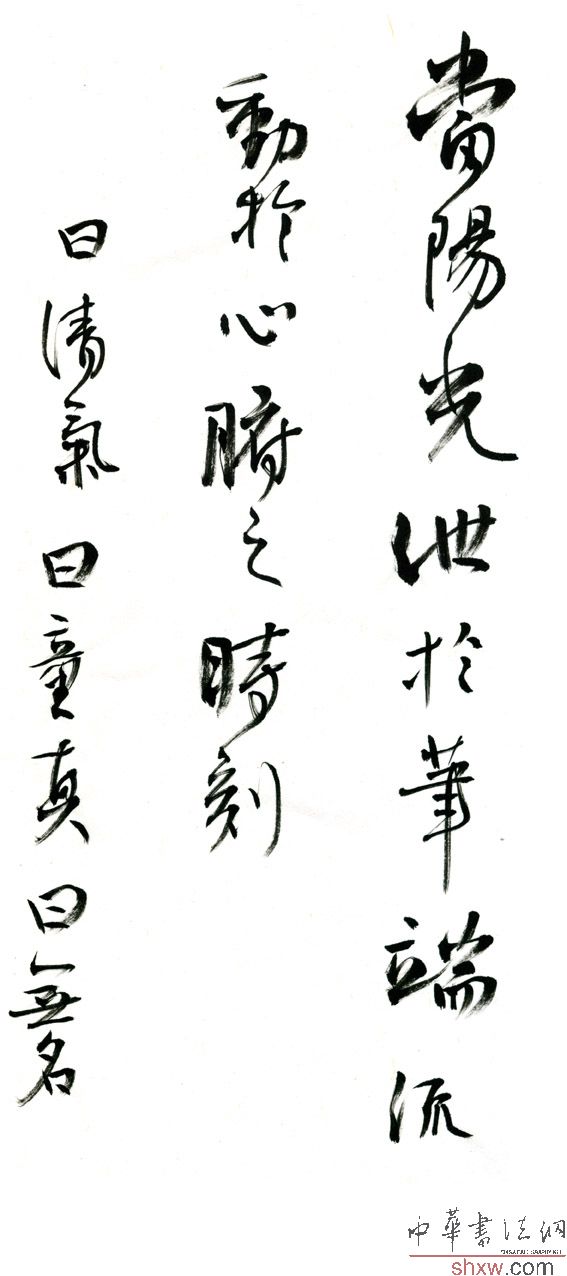 當陽光泄於筆端流
動於心腑之時刻
曰清氣曰童真曰無名
中華書法網
shxw.com